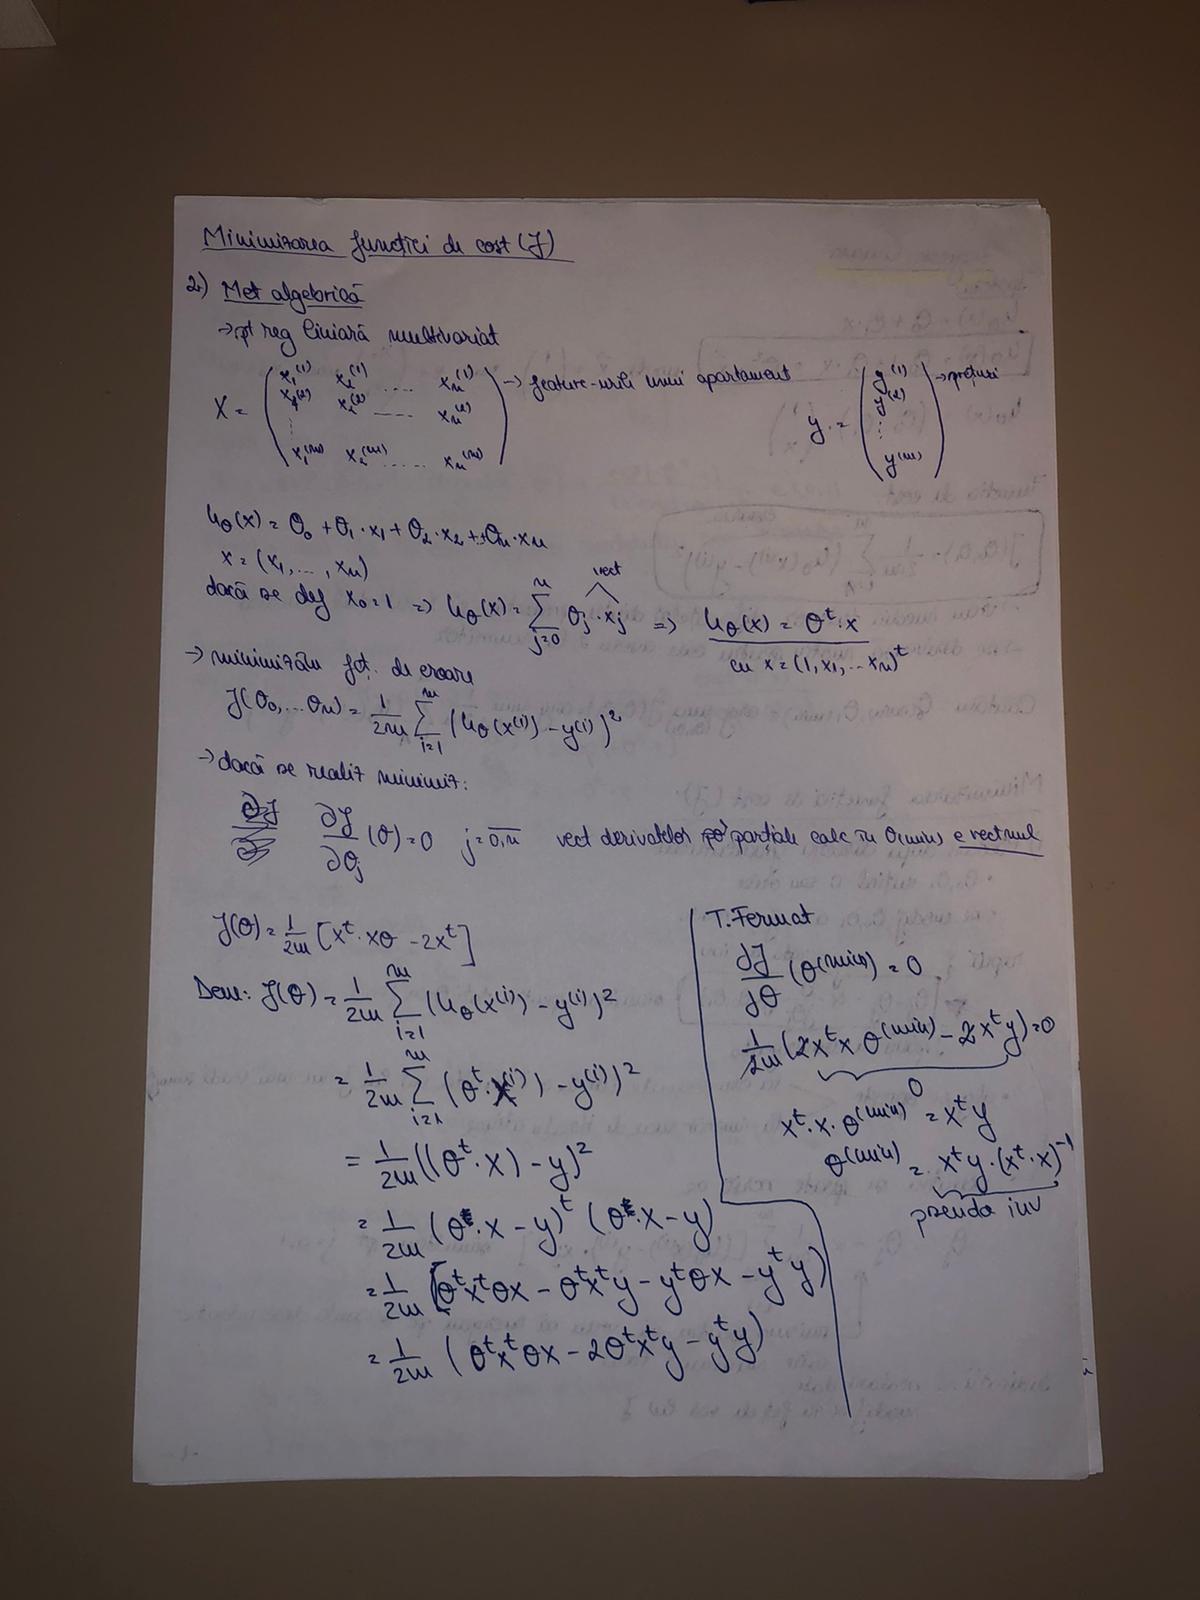 Minimizarea funcției de cost (J)
2) Met algebrică
→ pt reg liniară multivariat
X = ( x₁⁽¹⁾ x₂⁽¹⁾ .... xₙ⁽¹⁾ → feature-urile unui apartament
x₁⁽²⁾ x₂⁽²⁾ ----- xₙ⁽²⁾
⋮
x₁⁽ᵐ⁾ x₂⁽ᵐ⁾ ..... xₙ⁽ᵐ⁾ )
y = ( y⁽¹⁾ → prețuri
y⁽²⁾
⋮
y⁽ᵐ⁾ )
h_θ(x) = θ₀ + θ₁·x₁ + θ₂·x₂ + ... θₙ·xₙ
x = (x₁, ..., xₙ)
vect
dacă se def x₀=1 => h_θ(x) = ∑_{j=0}^{n} θⱼ·xⱼ => h_θ(x) = θᵗ·x
cu x = (1, x₁, ... xₙ)ᵗ
→ minimizăm fct. de eroare
J(θ₀, ... θₙ) = 1/2m ∑_{i=1}^{m} (h_θ(x⁽ⁱ⁾) - y⁽ⁱ⁾)²
→ dacă se realiz minimiz:
∂J/∂θⱼ (θ) = 0 j = 0,n vect derivatelor parțiale calc în θ(min) e vect nul
J(θ) = 1/2m [xᵗ·xθ - 2xᵗ]
Dem: J(θ) = 1/2m ∑_{i=1}^{m} (h_θ(x⁽ⁱ⁾) - y⁽ⁱ⁾)²
= 1/2m ∑_{i=1}^{m} (θᵗ·x⁽ⁱ⁾) - y⁽ⁱ⁾)²
= 1/2m ((θᵗ·x) - y)²
= 1/2m (θ·x - y)ᵗ (θ·x - y)
= 1/2m [θᵗxᵗθx - θᵗxᵗy - yᵗθx - yᵗy)
= 1/2m (θᵗxᵗθx - 2θᵗxᵗy - yᵗy)
T. Fermat
∂J/∂θ (θ⁽ᵐⁱⁿ⁾) = 0
1/2m (2xᵗx θ⁽ᵐⁱⁿ⁾ - 2xᵗy) = 0
0
xᵗ·x·θ⁽ᵐⁱⁿ⁾ = xᵗy
θ⁽ᵐⁱⁿ⁾ = xᵗy·(xᵗ·x)⁻¹
pseudo inv